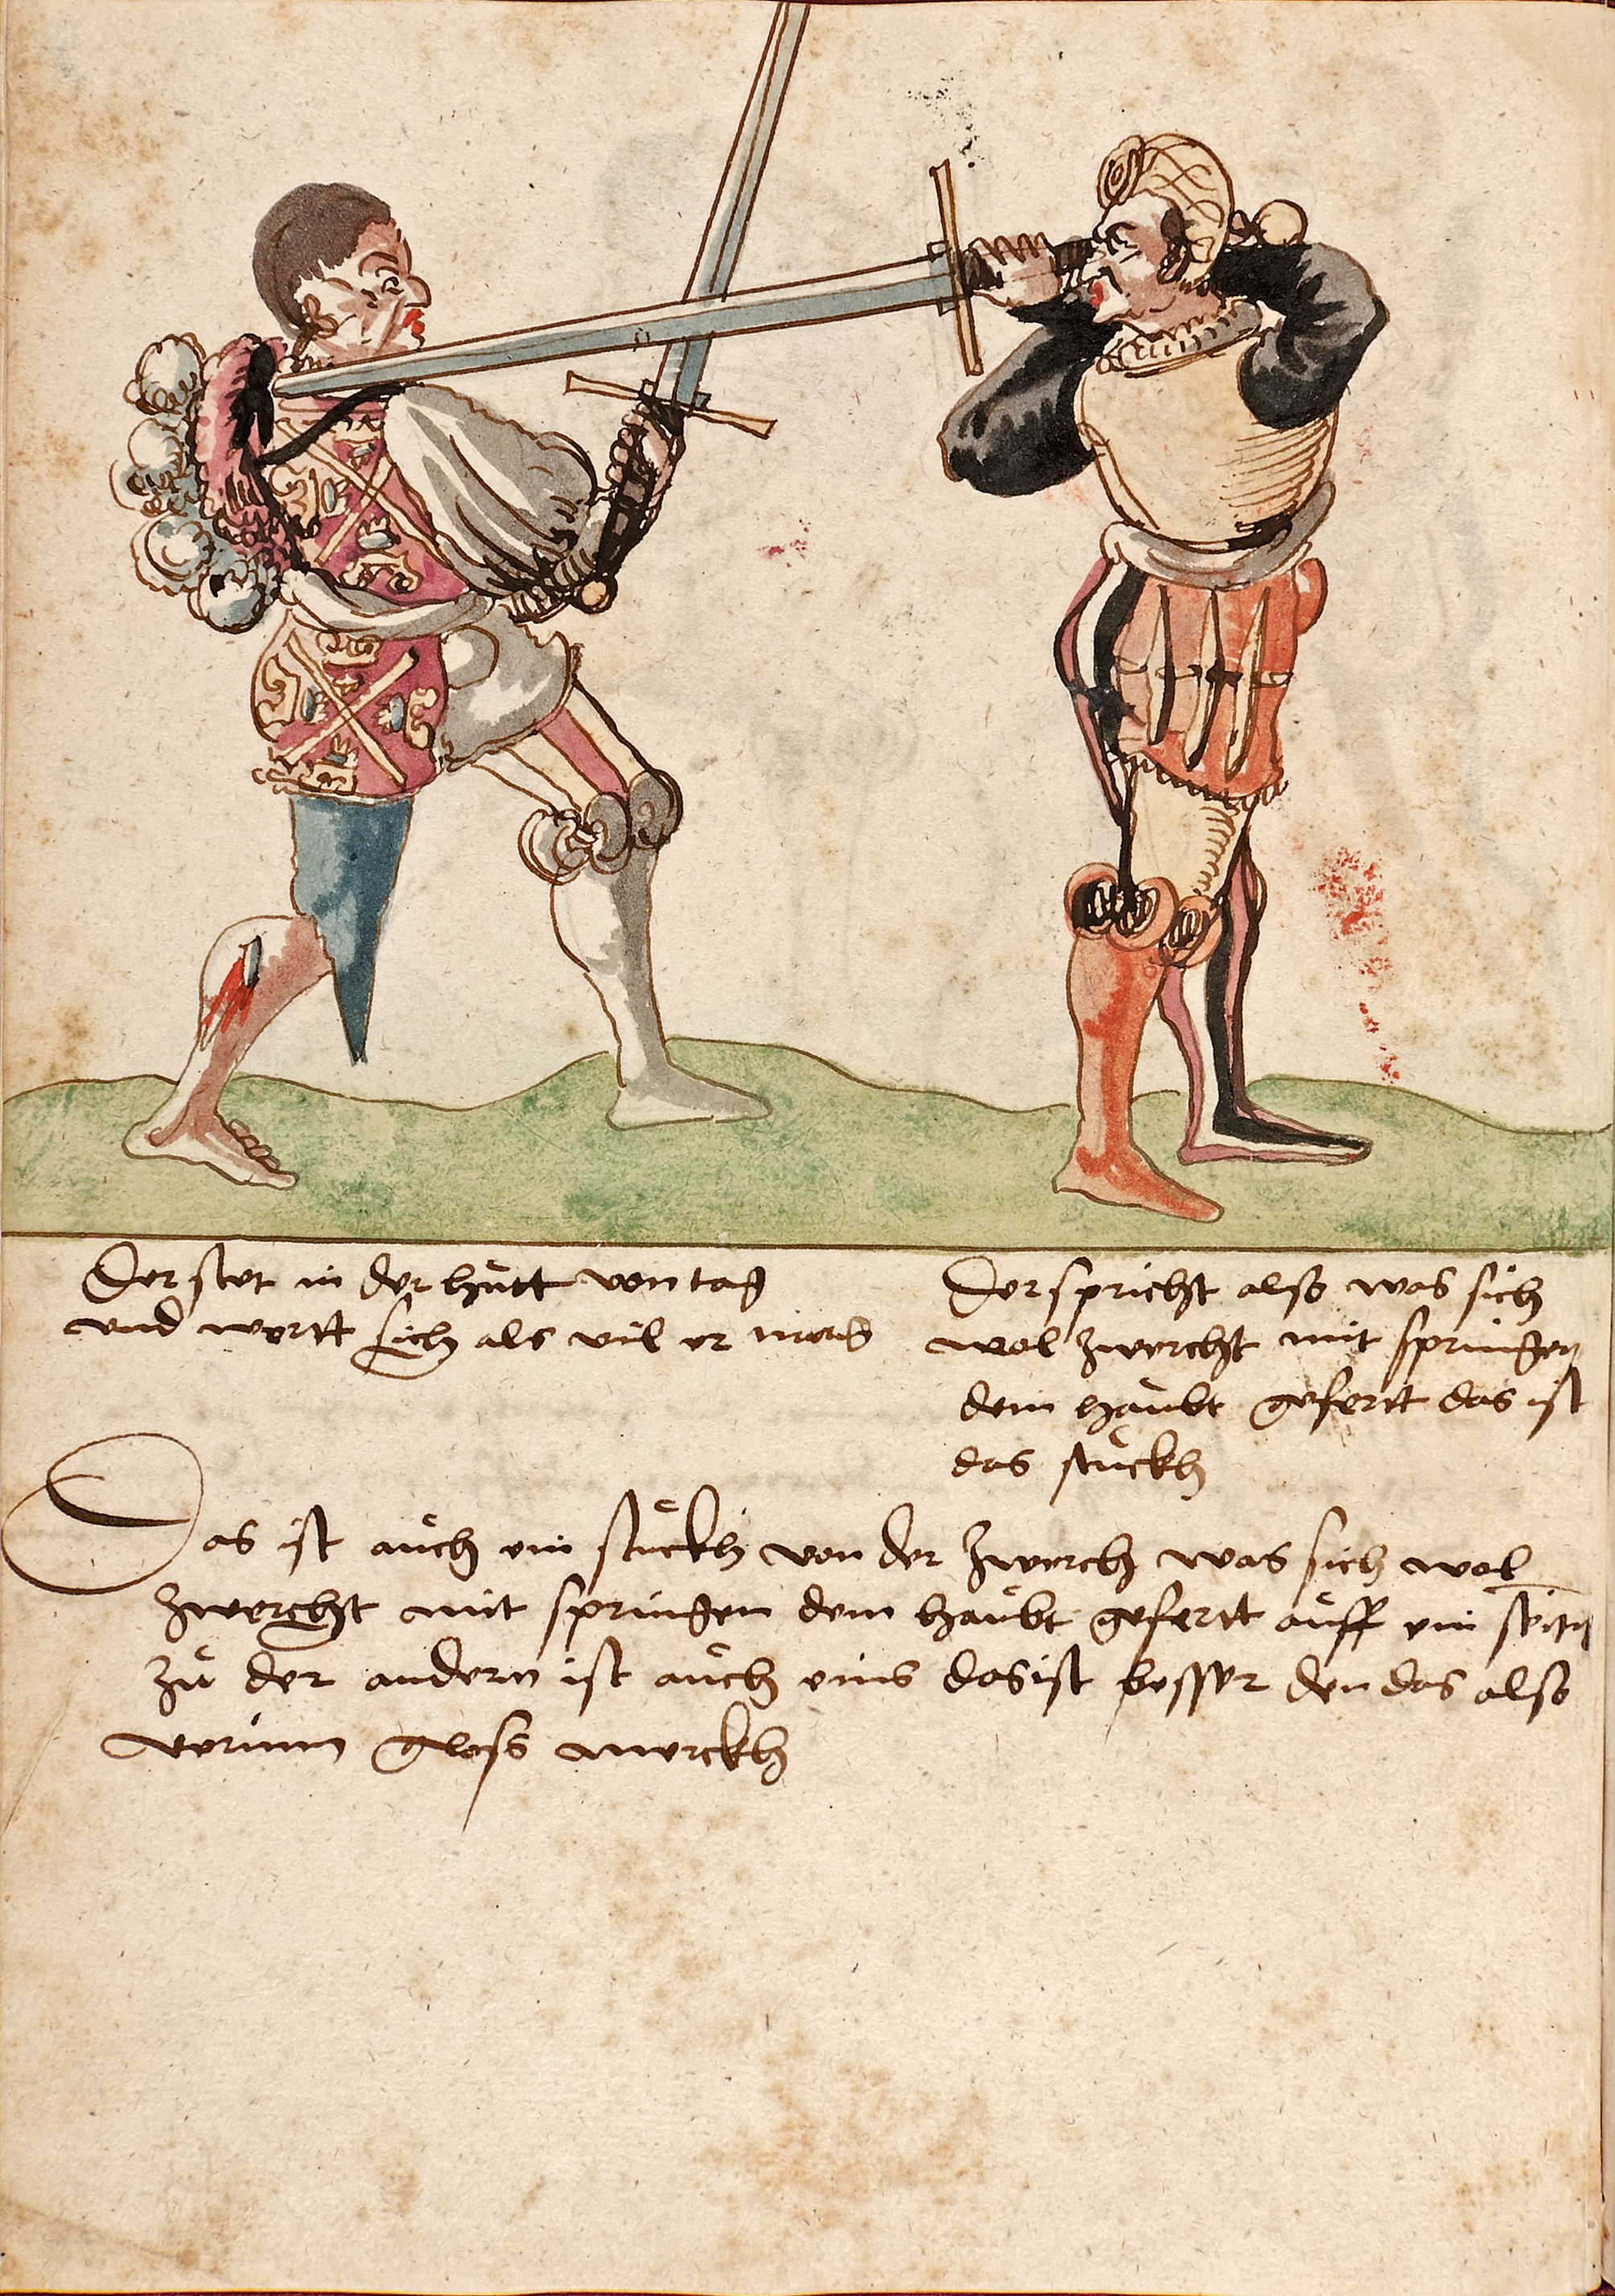 Der stet in der hůtt vom tag
und wertt sich als vil er mag
Der spricht also was sich
wol zwercht mit springen
dem haůbt gefertt das ist
das stůckh
Das ist aůch ein stůckh von der zwerch was sich wol
zwercht mit springen dem haůbt gefertt aůff ein
zů der andern ist aůch eins das ist besser den das also
gloss merckh